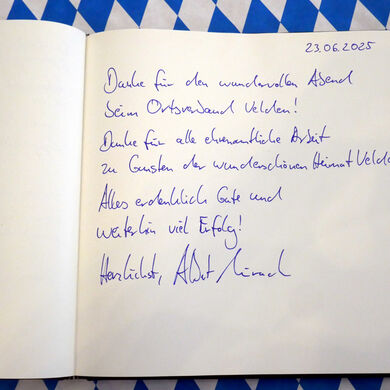 23.06.2025
Danke für den wundervollen Abend
beim Ortsverband Velden!
Danke für alle ehrenamtliche Arbeit
zu Gunsten der wunderschönen Heimat Velde
Alles erdenklich Gute und
weiterhin viel Erfolg!
Herzlichst,